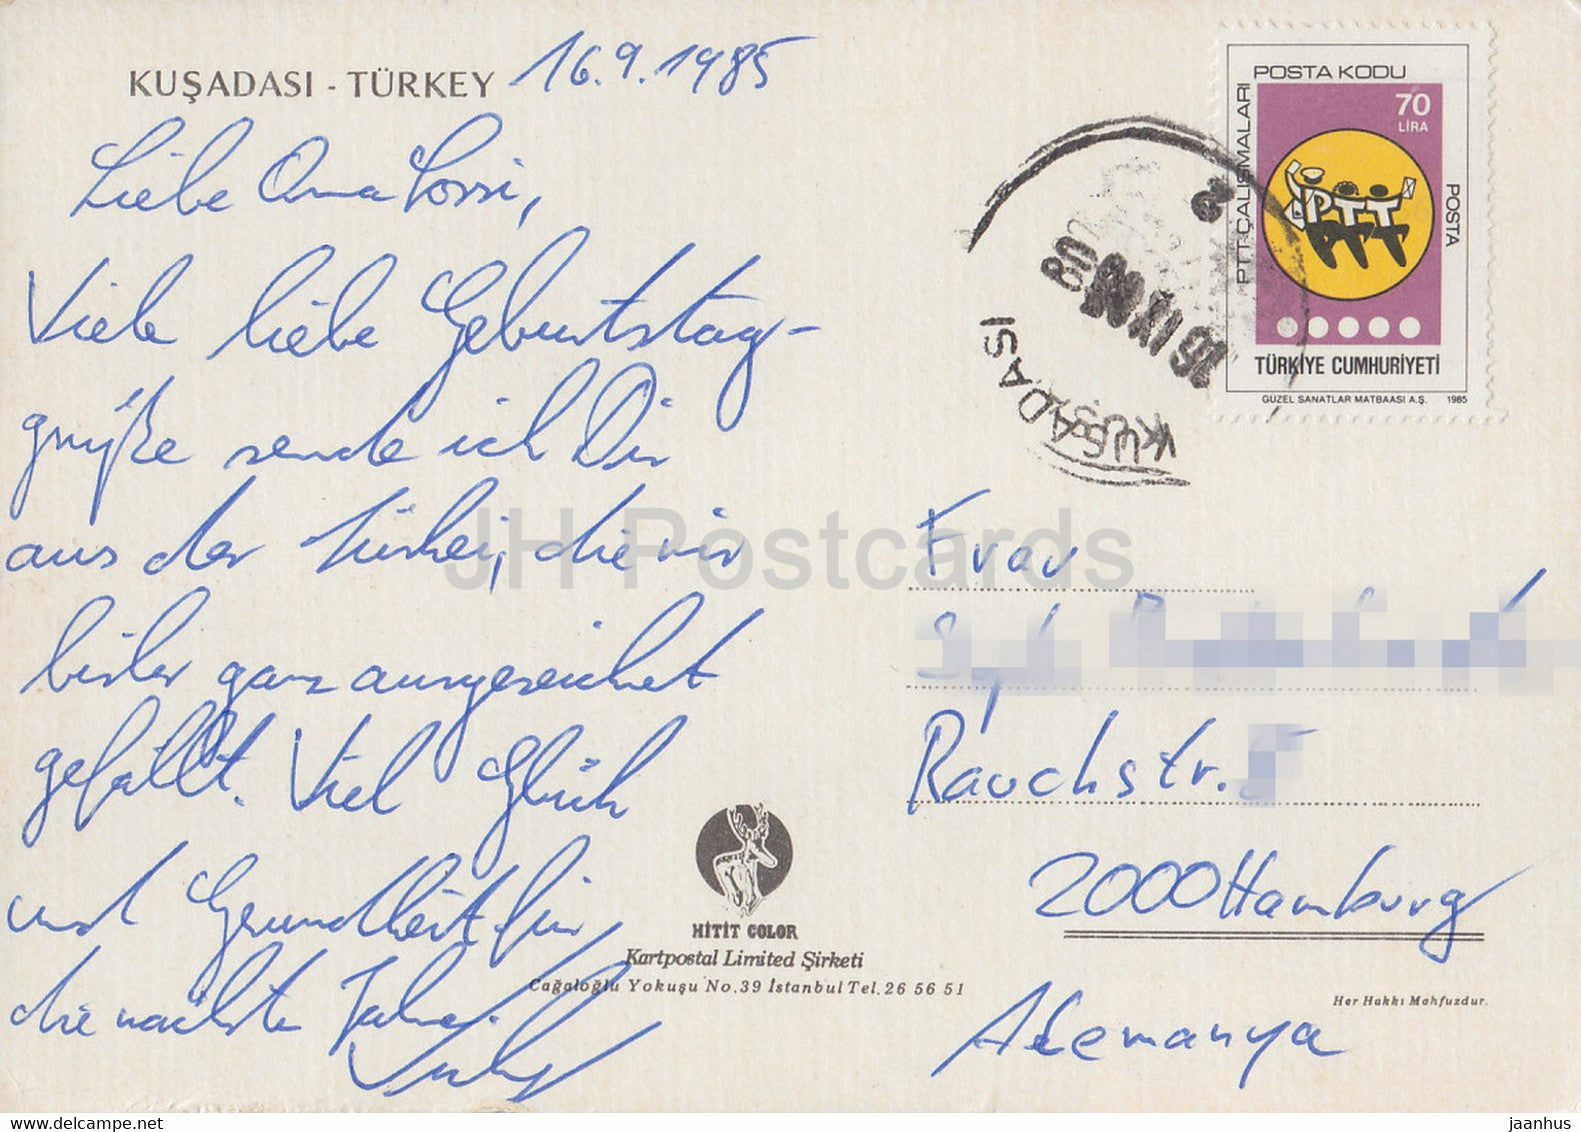 KUŞADASI - TÜRKEY 16.9.1985
Liebe Oma Lossi,
Viele liebe Geburtstag-
grüße sende ich Dir
aus der Türkei, die wir
bisher ganz ausgezeichnet
gefällt. Viel Glück
und Gesundheit für
die nächsten Jahre.
POSTA KODU
PTT ÇALIŞMALARI
70
LİRA
PTT
POSTA
TÜRKİYE CUMHURİYETİ
GÜZEL SANATLAR MATBAASI A.Ş. 1985
KUŞADASI
16 IX
Frau
Rauchstr.
2000 Hamburg
Alemanya
HİTİT COLOR
Kartpostal Limited Şirketi
Cağaloğlu Yokuşu No.39 İstanbul Tel. 26 56 51
Her Hakkı Mahfuzdur.
JH Postcards
www.delcampe.net
jaanhus